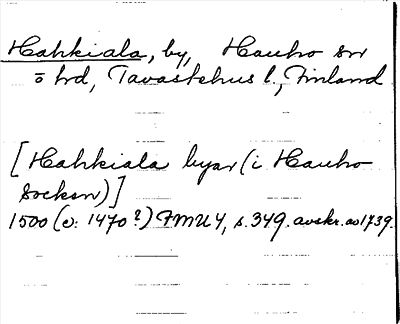 Hahkiala, by, Hauho sn
ö hd, Tavastehus l., Finland
[Hahkiala byar (i Hauho
Socksn)]
1500 (o: 1470?) FMU 4, s. 349. avskr. av 1739.